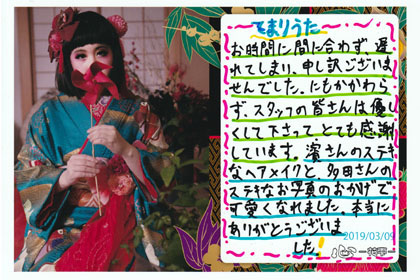 てまりうた
お時間に間に合わず、遅
れてしまい、申し訳ございま
せんでした。にもかかわら
ず、スタッフの皆さんは優し
くして下さって、とても感謝
しています。濱さんのステキ
なヘアメイクと、多田さんの
ステキなお写真のおかげで
可愛くなれました。本当に
ありがとうございま
した!
2019/03/09